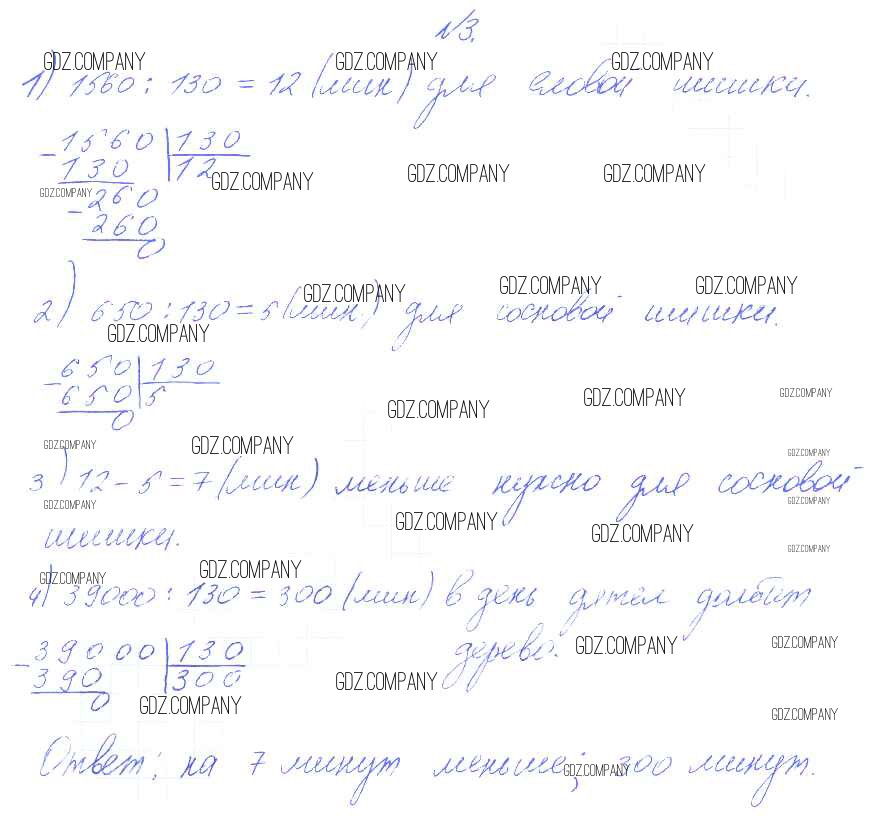 №3.
GDZ.COMPANY GDZ.COMPANY GDZ.COMPANY
1) 1560 : 130 = 12 (мин) для еловой шишки.
- 1560 | 130
130 | 12
GDZ.COMPANY GDZ.COMPANY GDZ.COMPANY
GDZ.COMPANY
- 260
260
0
GDZ.COMPANY GDZ.COMPANY GDZ.COMPANY
2) 650 : 130 = 5 (мин) для сосновой шишки.
GDZ.COMPANY
- 650 | 130
650 | 5
0
GDZ.COMPANY GDZ.COMPANY GDZ.COMPANY
GDZ.COMPANY GDZ.COMPANY GDZ.COMPANY
3) 12 - 5 = 7 (мин) меньше нужно для сосновой
GDZ.COMPANY GDZ.COMPANY
GDZ.COMPANY GDZ.COMPANY
шишки.
GDZ.COMPANY
GDZ.COMPANY GDZ.COMPANY
4) 39000 : 130 = 300 (мин) в день дятел долбит
дерево.
GDZ.COMPANY GDZ.COMPANY
- 39000 | 130
390 | 300
0
GDZ.COMPANY
GDZ.COMPANY GDZ.COMPANY
Ответ: на 7 минут меньше; 300 минут.
GDZ.COMPANY